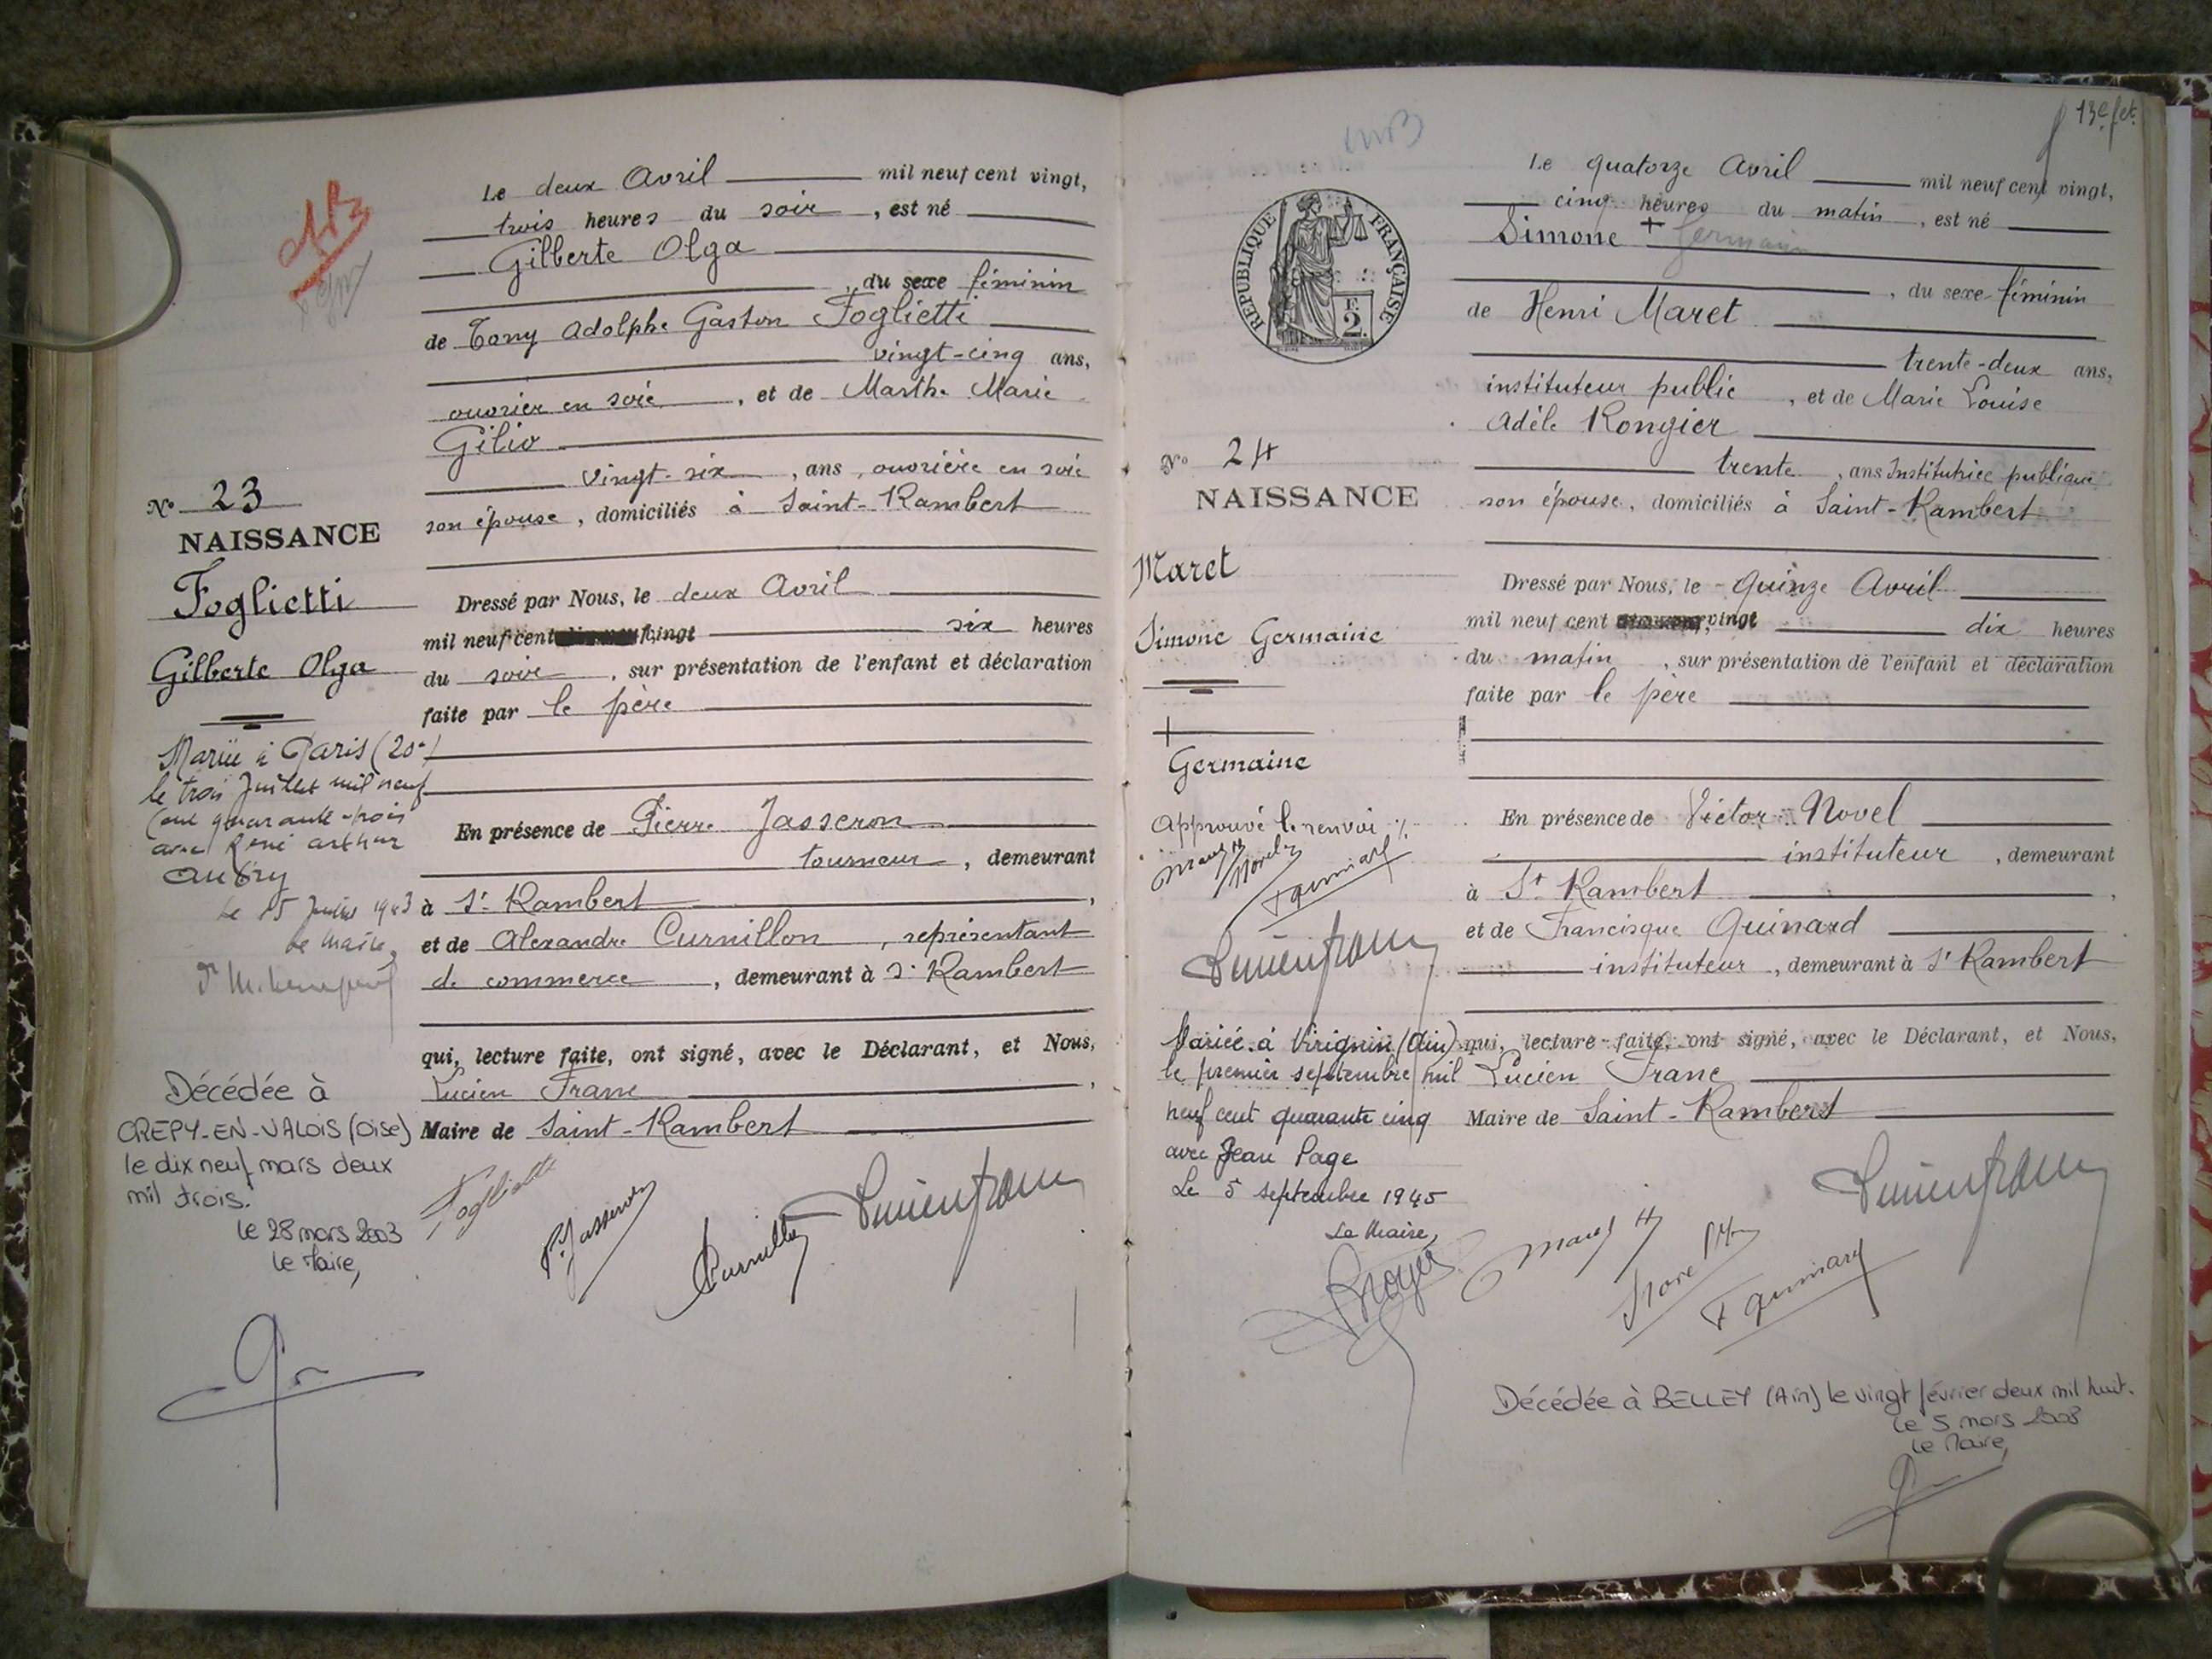 Le deux Avril mil neuf cent vingt,
trois heures du soir, est né
Gilberte Olga
, du sexe féminin
de Tony Adolphe Gaston Foglietti
vingt-cinq ans,
ouvrier en soie, et de Marthe Marie
Gilio
vingt-six, ans, ouvrière en soie
son épouse, domiciliés à Saint-Rambert
Nº 23
NAISSANCE
Foglietti
Gilberte Olga
Dressé par Nous, le deux Avril
mil neuf cent vingt six heures
du soir, sur présentation de l'enfant et déclaration
faite par le père
Mariée à Paris (20e)
le trois Juillet mil neuf
cent quarante-trois
avec René Arthur
Aubry
Le 15 Juillet 1943
Le Maire,
En présence de Pierre Jasseron
tourneur, demeurant
à St Rambert,
et de Alexandre Curnillon, représentant
de commerce, demeurant à St Rambert
qui, lecture faite, ont signé, avec le Déclarant, et Nous,
Lucien Franc,
Maire de Saint-Rambert
Décédée à
CREPY-EN-VALOIS (Oise)
le dix neuf mars deux
mil trois.
le 28 mars 2003
Le Maire,
Foglietti
P. Jasseron
Curnillon
Lucien Franc
13e fet.
Le quatorze Avril mil neuf cent vingt,
cinq heures du matin, est né
Simone + Germaine
, du sexe féminin
de Henri Maret
trente-deux ans,
instituteur public, et de Marie Louise
Adèle Rongier
trente, ans Institutrice publique
son épouse, domiciliés à Saint-Rambert
RÉPUBLIQUE FRANÇAISE
2F
Nº 24
NAISSANCE
Maret
Simone Germaine
+
Germaine
Approuvé le renvoi ./.
Maret H
Novel
F Quinard
Lucien Franc
Dressé par Nous, le quinze Avril
mil neuf cent vingt dix heures
du matin, sur présentation de l'enfant et déclaration
faite par le père
En présence de Victor Novel
instituteur, demeurant
à St Rambert,
et de Francisque Quinard
instituteur, demeurant à St Rambert
qui, lecture faite, ont signé, avec le Déclarant, et Nous,
Lucien Franc
Maire de Saint-Rambert
Mariée à Virignin (Ain)
le premier septembre mil
neuf cent quarante cinq
avec Jean Page
Le 5 septembre 1945
Le Maire,
Maret H
Novel
F Quinard
Lucien Franc
Décédée à BELLEY (Ain) le vingt février deux mil huit.
le 5 mars 2008
Le Maire,